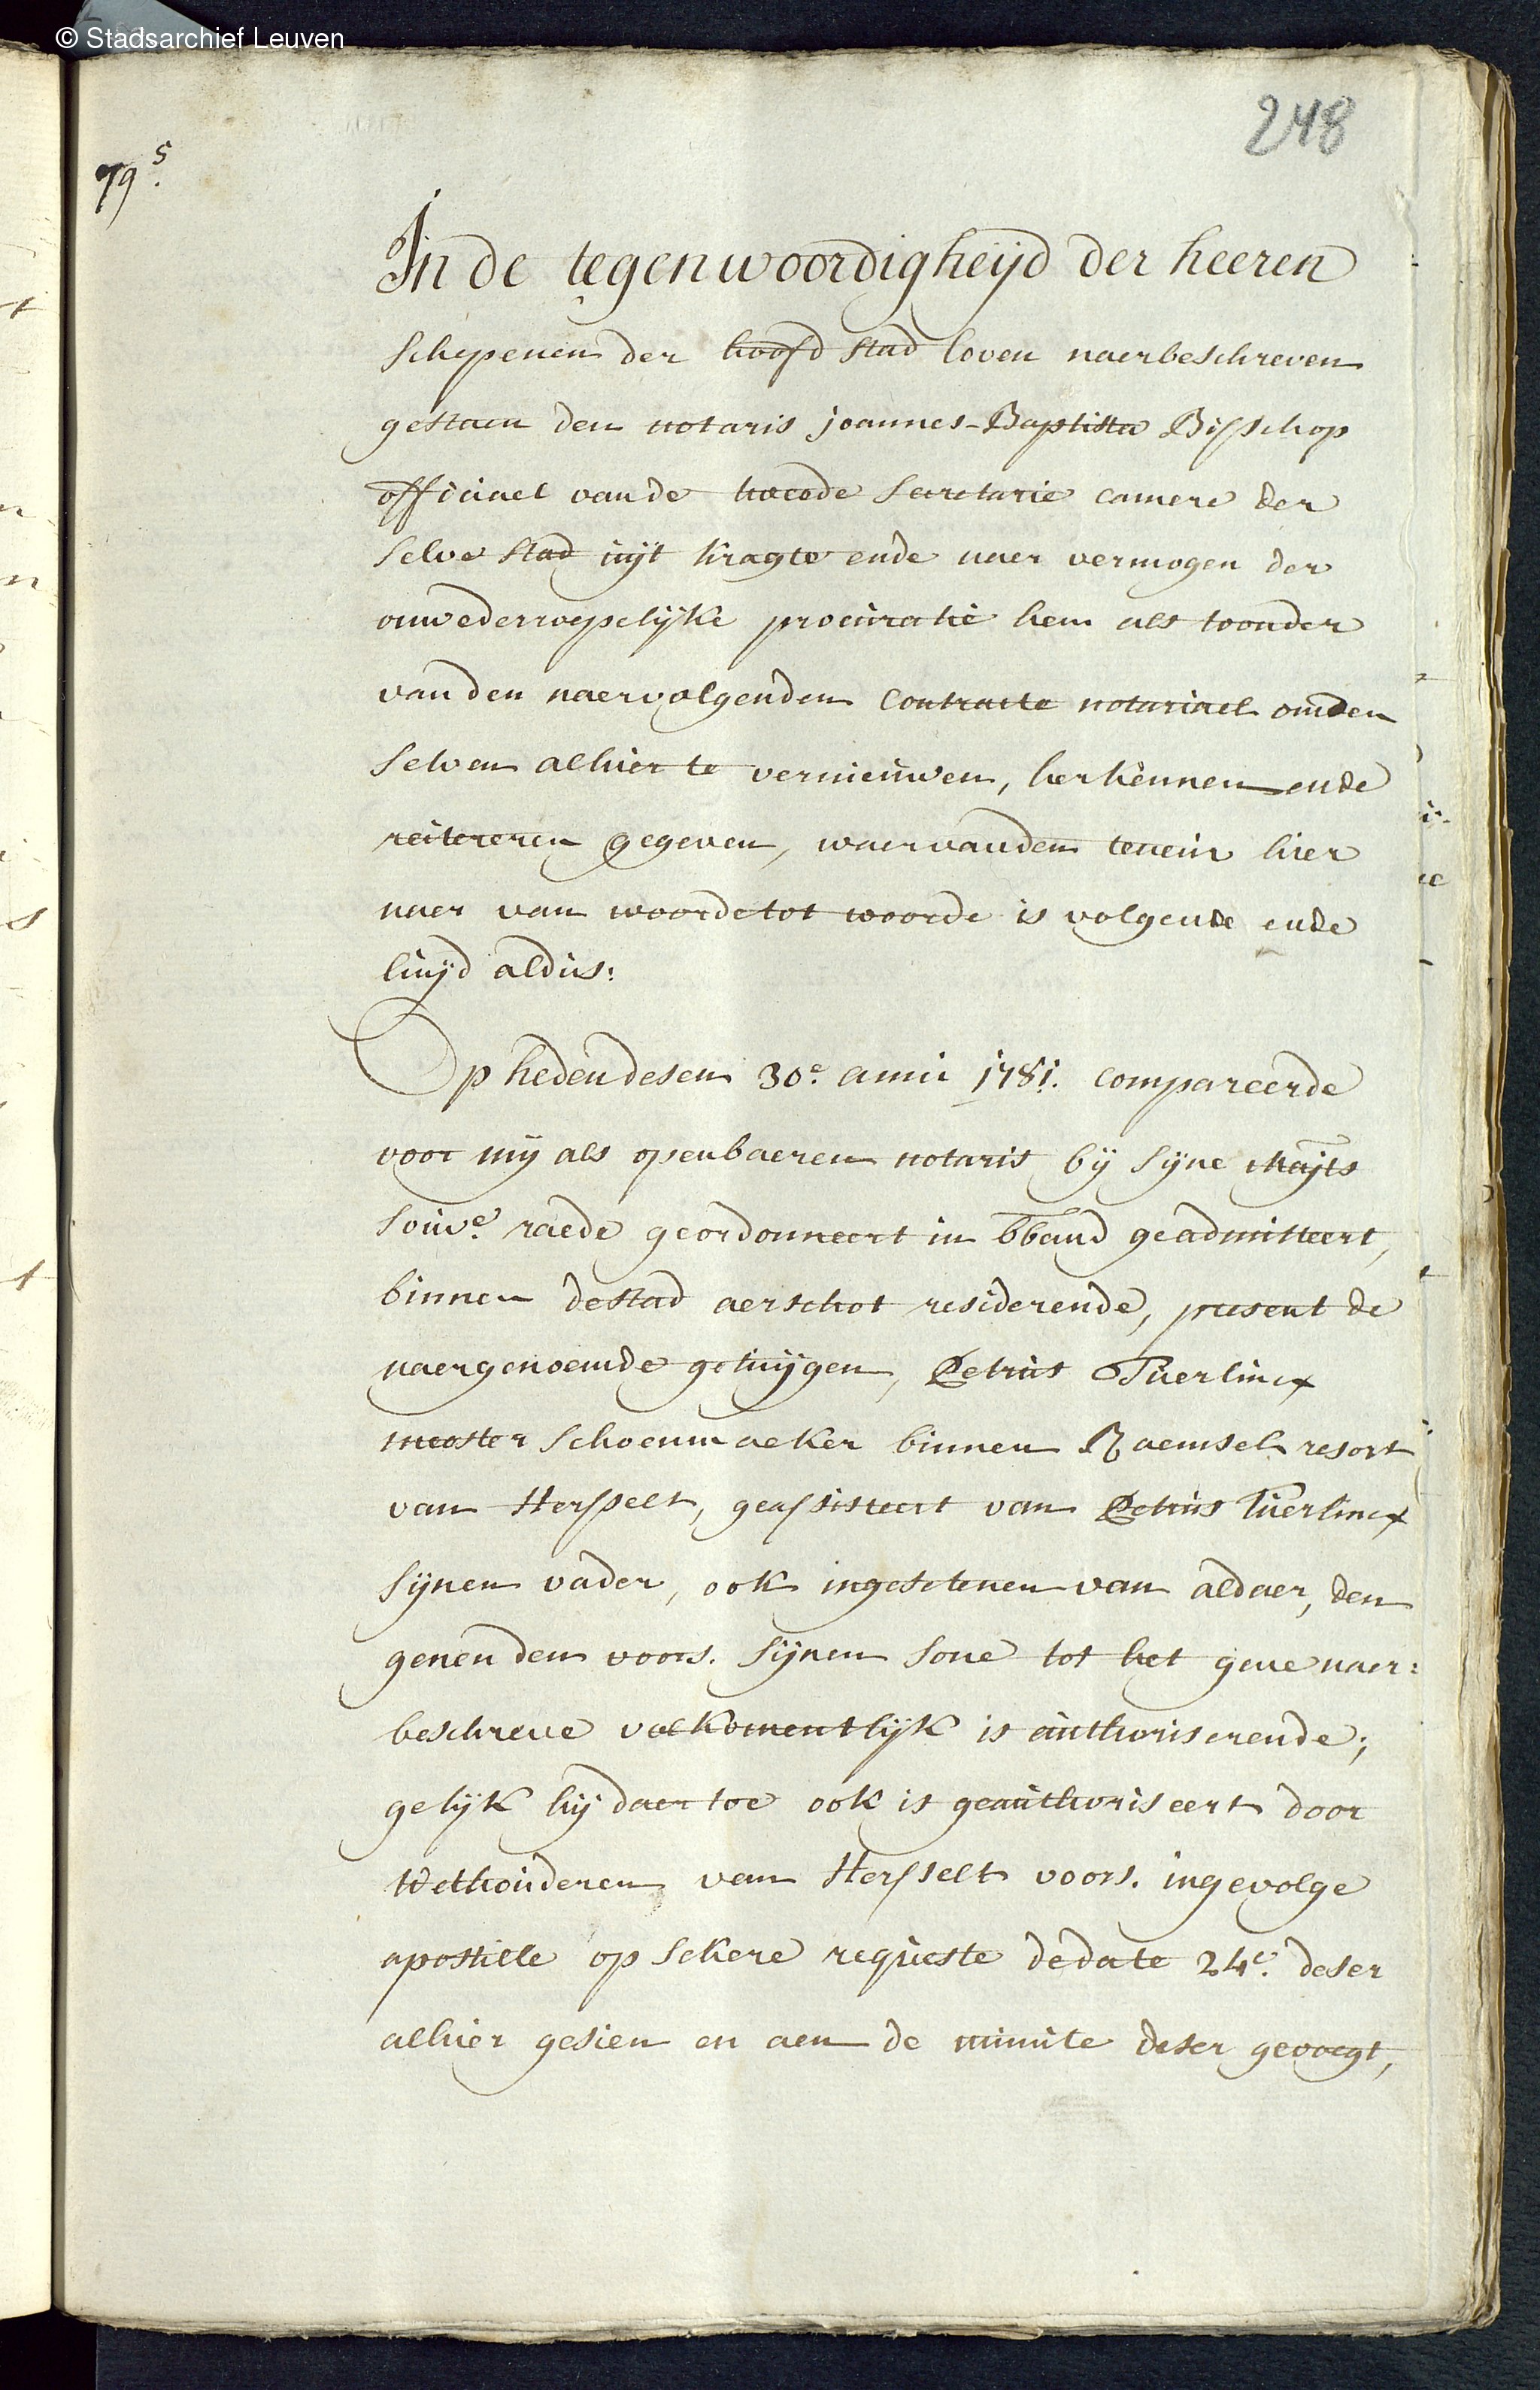 © Stadsarchief Leuven
248
79s.
In de tegenwoordigheijd der heeren
schepenen der hoofd stad loven naerbeschreven
gestaen den notaris joannes-Baptista Bisschop
officiael vande tweede secretarie camere der
selve stad uijt kragte ende naer vermogen der
onwederroepelijke procuratie hem als toonder
van den naervolgenden contracte notariael omden
selven alhier te vernieuwen, herkennen ende
reitereren gegeven, waervanden teneur hier
naer van woorde tot woorde is volgende ende
luijd aldus:
Op heden desen 30e. 1781. compareerde
voor mij als openbaeren notaris bij sijne Majts
souve. raede geordonneert in bband geadmitteert,
binnen de stad aerschot residerende, present de
naergenoemde getuijgen, Petrus Tuerlincx
meester schoenmaeker binnen Raemsel resort
van Hersselt, geassisteert van Petrus Tuerlincx
sijnen vader, ook ingesetenen van aldaer, den
genen den voors. sijnen sone tot het gene naer:
beschreve volkomentlijk is authoriserende;
gelijk hij daer toe ook is geauthoriseert door
Wethouderen van Hersselt voors. ingevolge
apostille op sekere requeste de date 24e. deser
alhier gesien en aen de minute deser gevoegt,